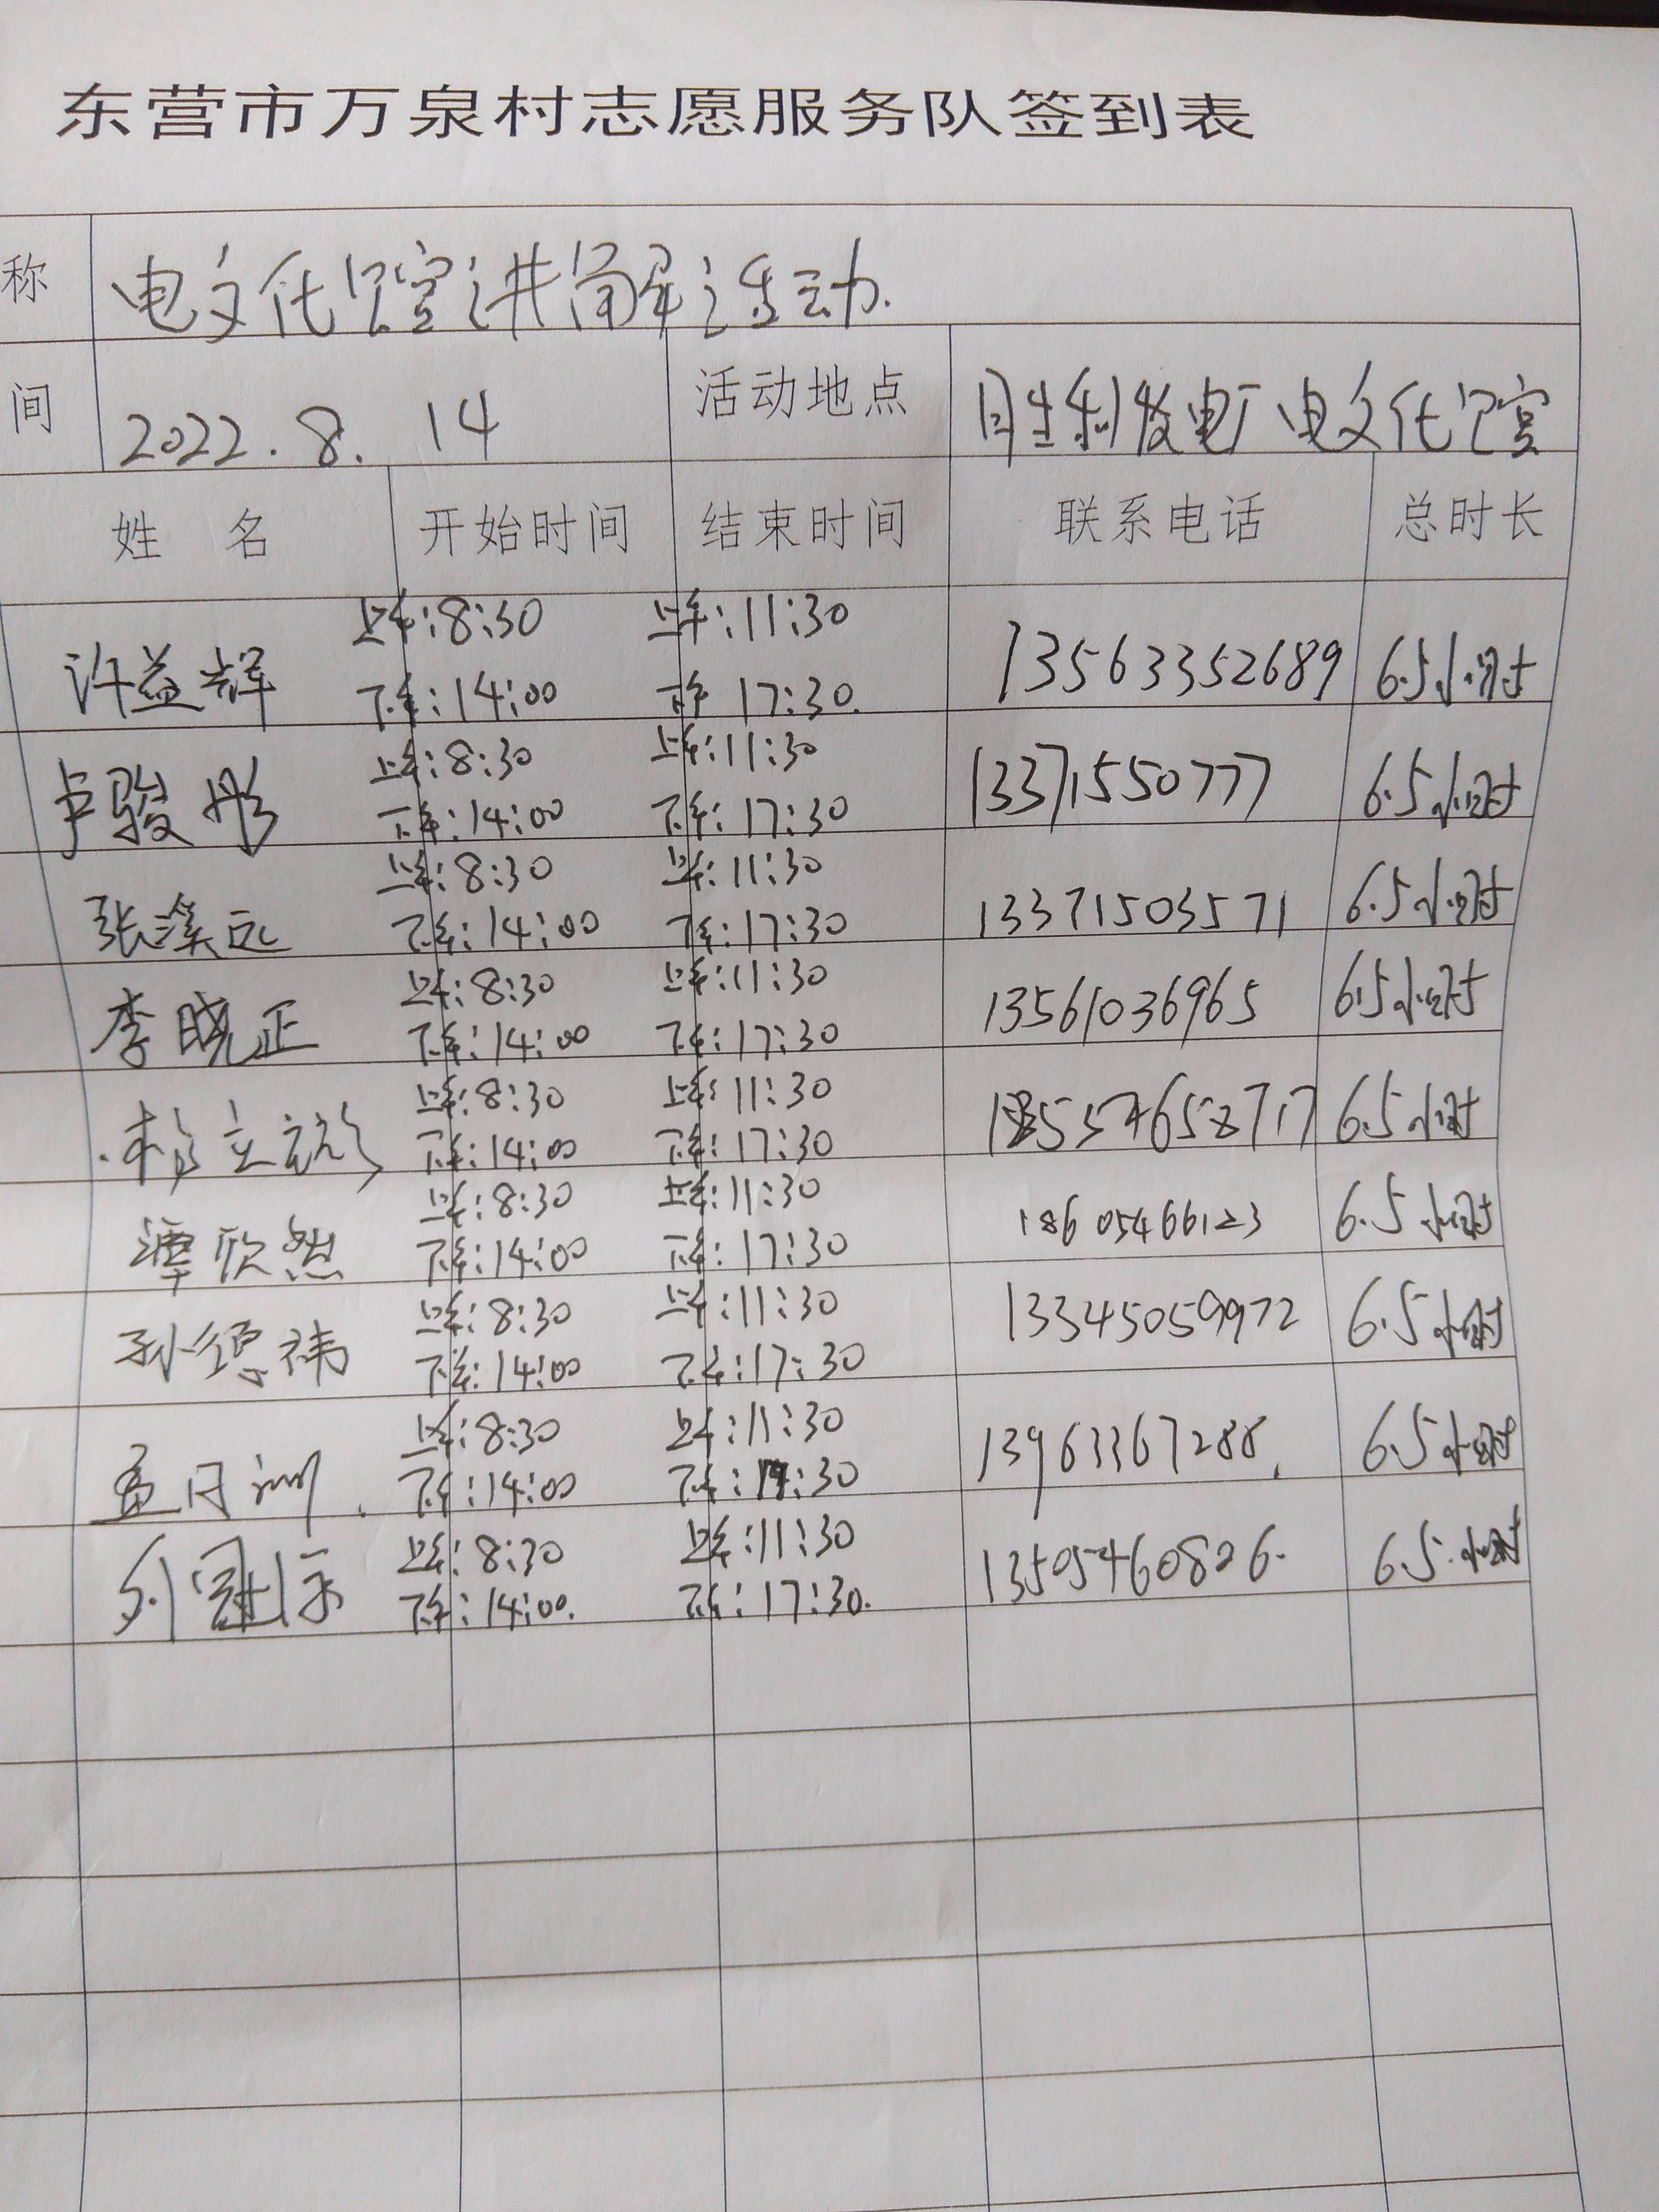 东营市万泉村志愿服务队签到表
称 电文化展室讲解活动.
间 2022.8.14 活动地点 胜利发电厂电文化展室
姓 名 开始时间 结束时间 联系电话 总时长
上午:8:30 上午:11:30
许益辉 13563352689 6.5小时
下午:14:00 下午 17:30.
上午:8:30 上午:11:30
卢骏彤 13371550777 6.5小时
下午:14:00 下午:17:30
上午:8:30 上午:11:30
张溪远 13371503571 6.5小时
下午:14:00 下午:17:30
上午:8:30 上午:11:30
李晓正 13561036965 6.5小时
下午:14:00 下午:17:30
上午:8:30 上午:11:30
6.5小时
下午:14:00 下午:17:30
上午:8:30 上午:11:30
谭欣然 18605466123 6.5小时
下午:14:00 下午:17:30
上午:8:30 上午:11:30
孙德祎 13345059972 6.5小时
下午:14:00 下午:17:30
上午:8:30 上午:11:30
孟月 13963367288. 6.5小时
下午:14:00 下午:17:30
上午:8:30 上午:11:30
13505460826. 6.5小时
下午:14:00. 下午:17:30.